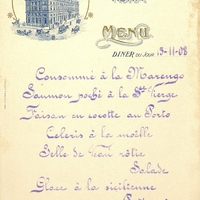 MENU
DINER DU JOUR 15-11-08
Consommé à la Marengo
Saumon poché à la Ste Vierge
Faisan en cocotte au Porto
Céleris à la moëlle
Selle de Veau rôtie
Salade
Glace à la sicilienne